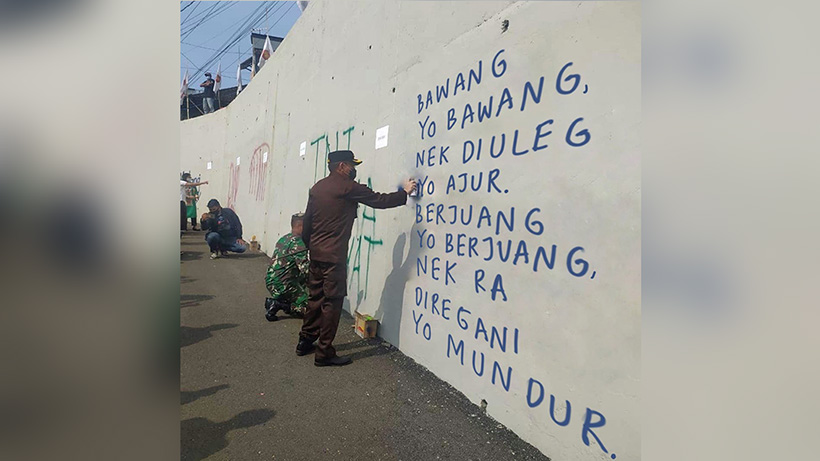 BAWANG
YO BAWANG,
NEK DIULEG
YO AJUR.
BERJUANG
YO BERJUANG,
NEK RA
DIREGANI
YO MUNDUR.
TNT